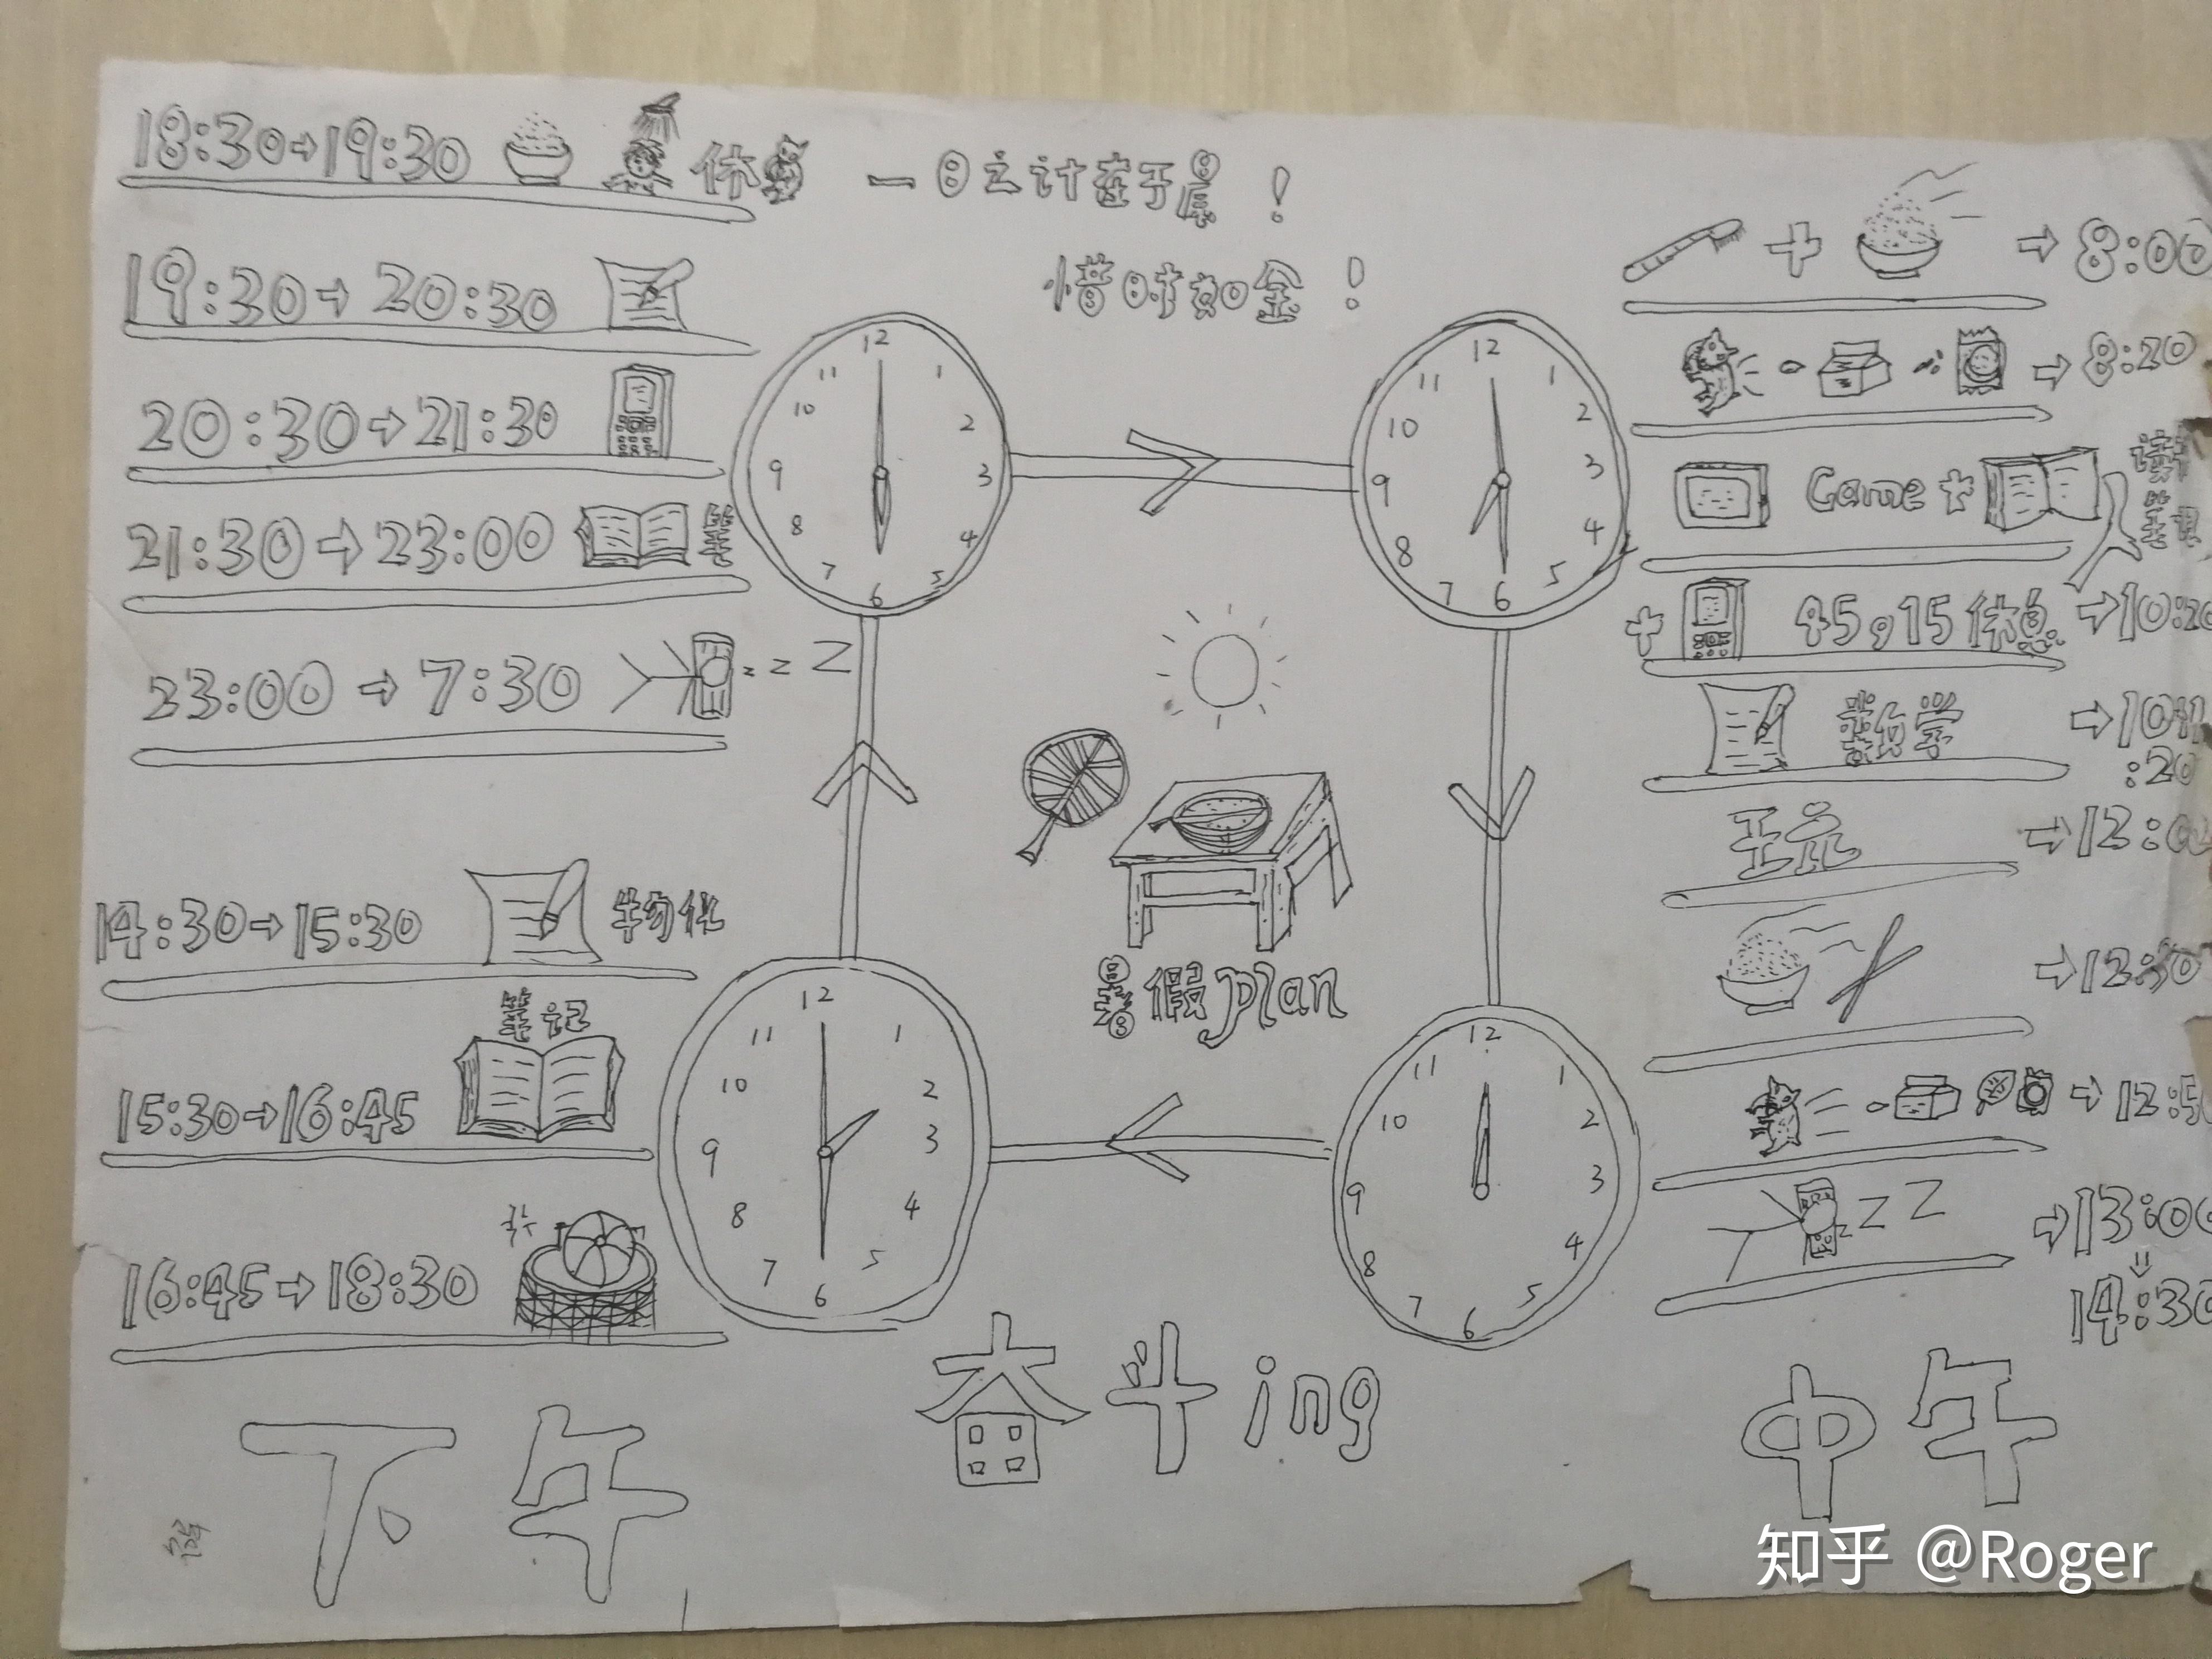 18:30→19:30 休
一日之计在于晨！
惜时如金！
19:30→20:30
20:30→21:30
21:30→23:00
23:00→7:30
→8:00
→8:20
Game+
+ 45,15休息 →10:20
数学
:20
→12:
→12:30
→12:5
zZZ →13:00
14:30
zzZ
12 1 2 3 4 5 6 7 8 9 10 11
12 1 2 3 4 5 6 7 8 9 10 11
暑假plan
14:30→15:30 物化
笔记
15:30→16:45
16:45→18:30
12 1 2 3 4 5 6 7 8 9 10 11
12 1 2 3 4 5 6 7 8 9 10 11
奋斗ing
下午
中午
知乎 @Roger